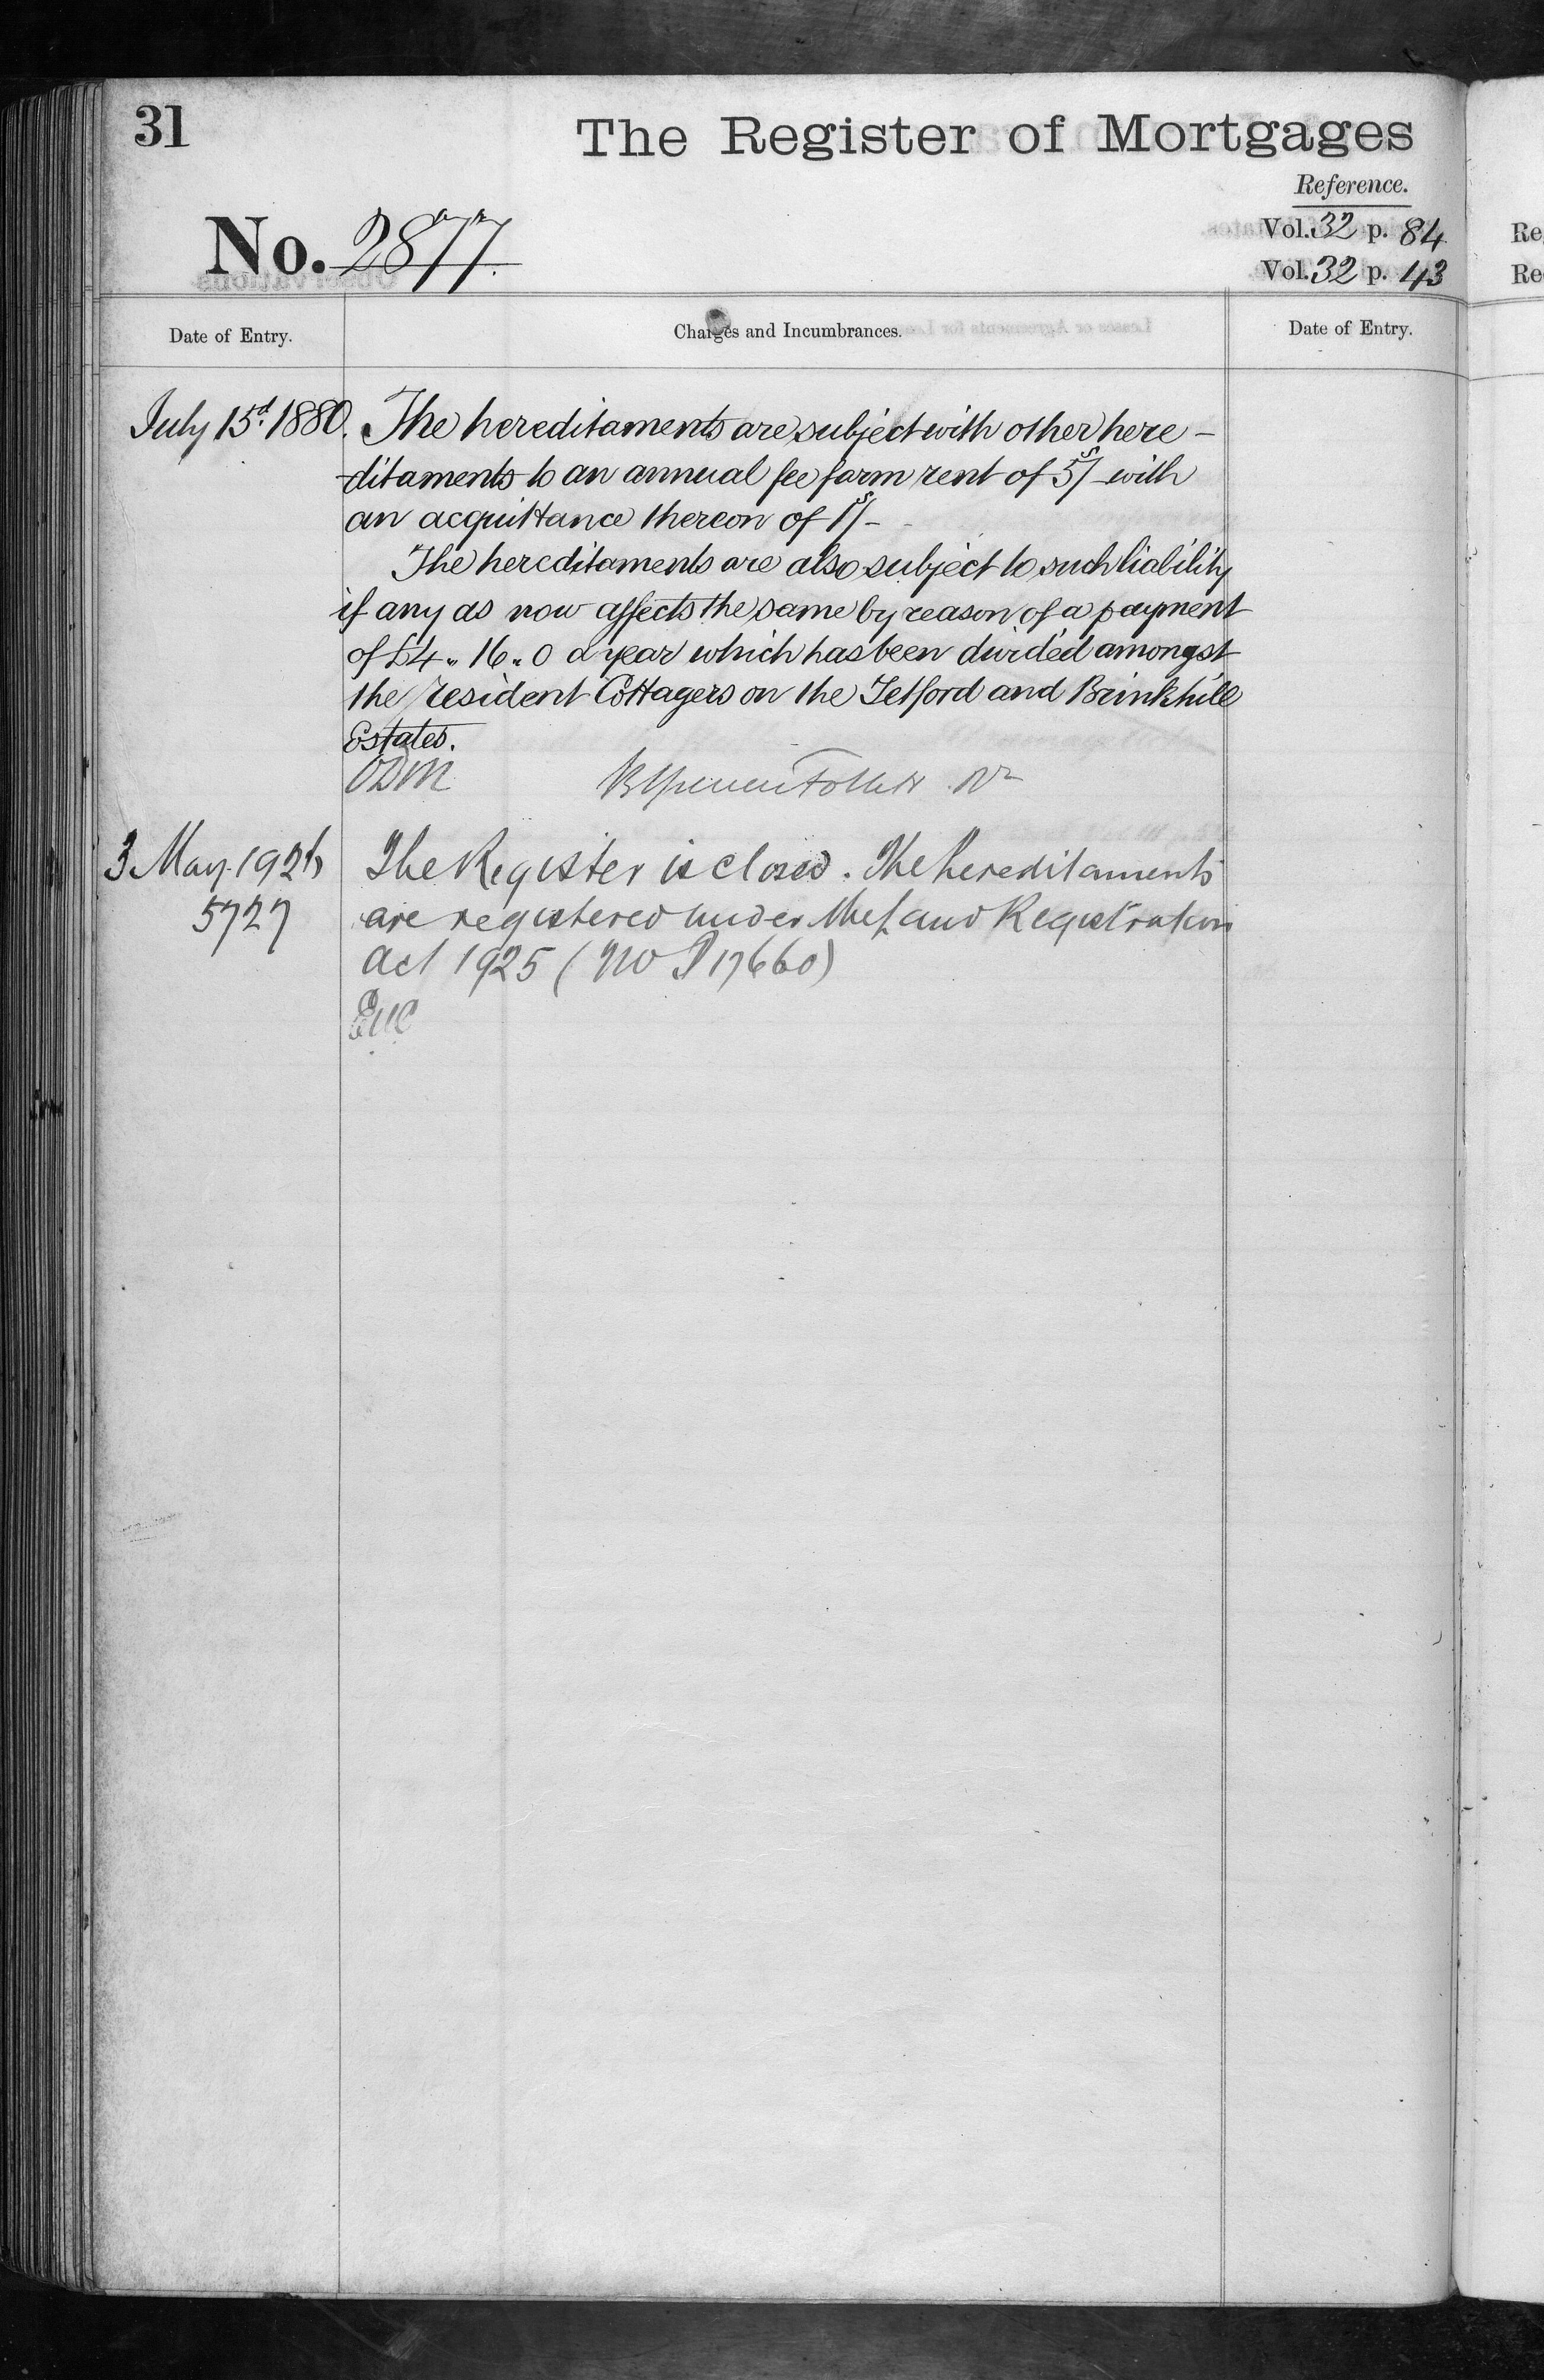 31
The Register of Mortgages
Reference.
No. 2877.
Vol. 32 p. 84
Vol. 32 p. 43
Re
Re
Date of Entry.
Charges and Incumbrances.
Date of Entry.
July 15.d 1880. The hereditaments are subject with other here-
-ditaments to an annual fee farm rent of 5s/- with
an acquittance thereon of 1s/-
The hereditaments are also subject to such liability
if any as now affects the same by reason of a payment
of £4 " 16 " 0 a year which has been divided amongst
the resident Cottagers on the Tetford and Brinkhill
Estates.
3 May 1926 The Register is closed. The hereditaments
5727 are registered under the Land Registration
Act 1925 (No P 17660)